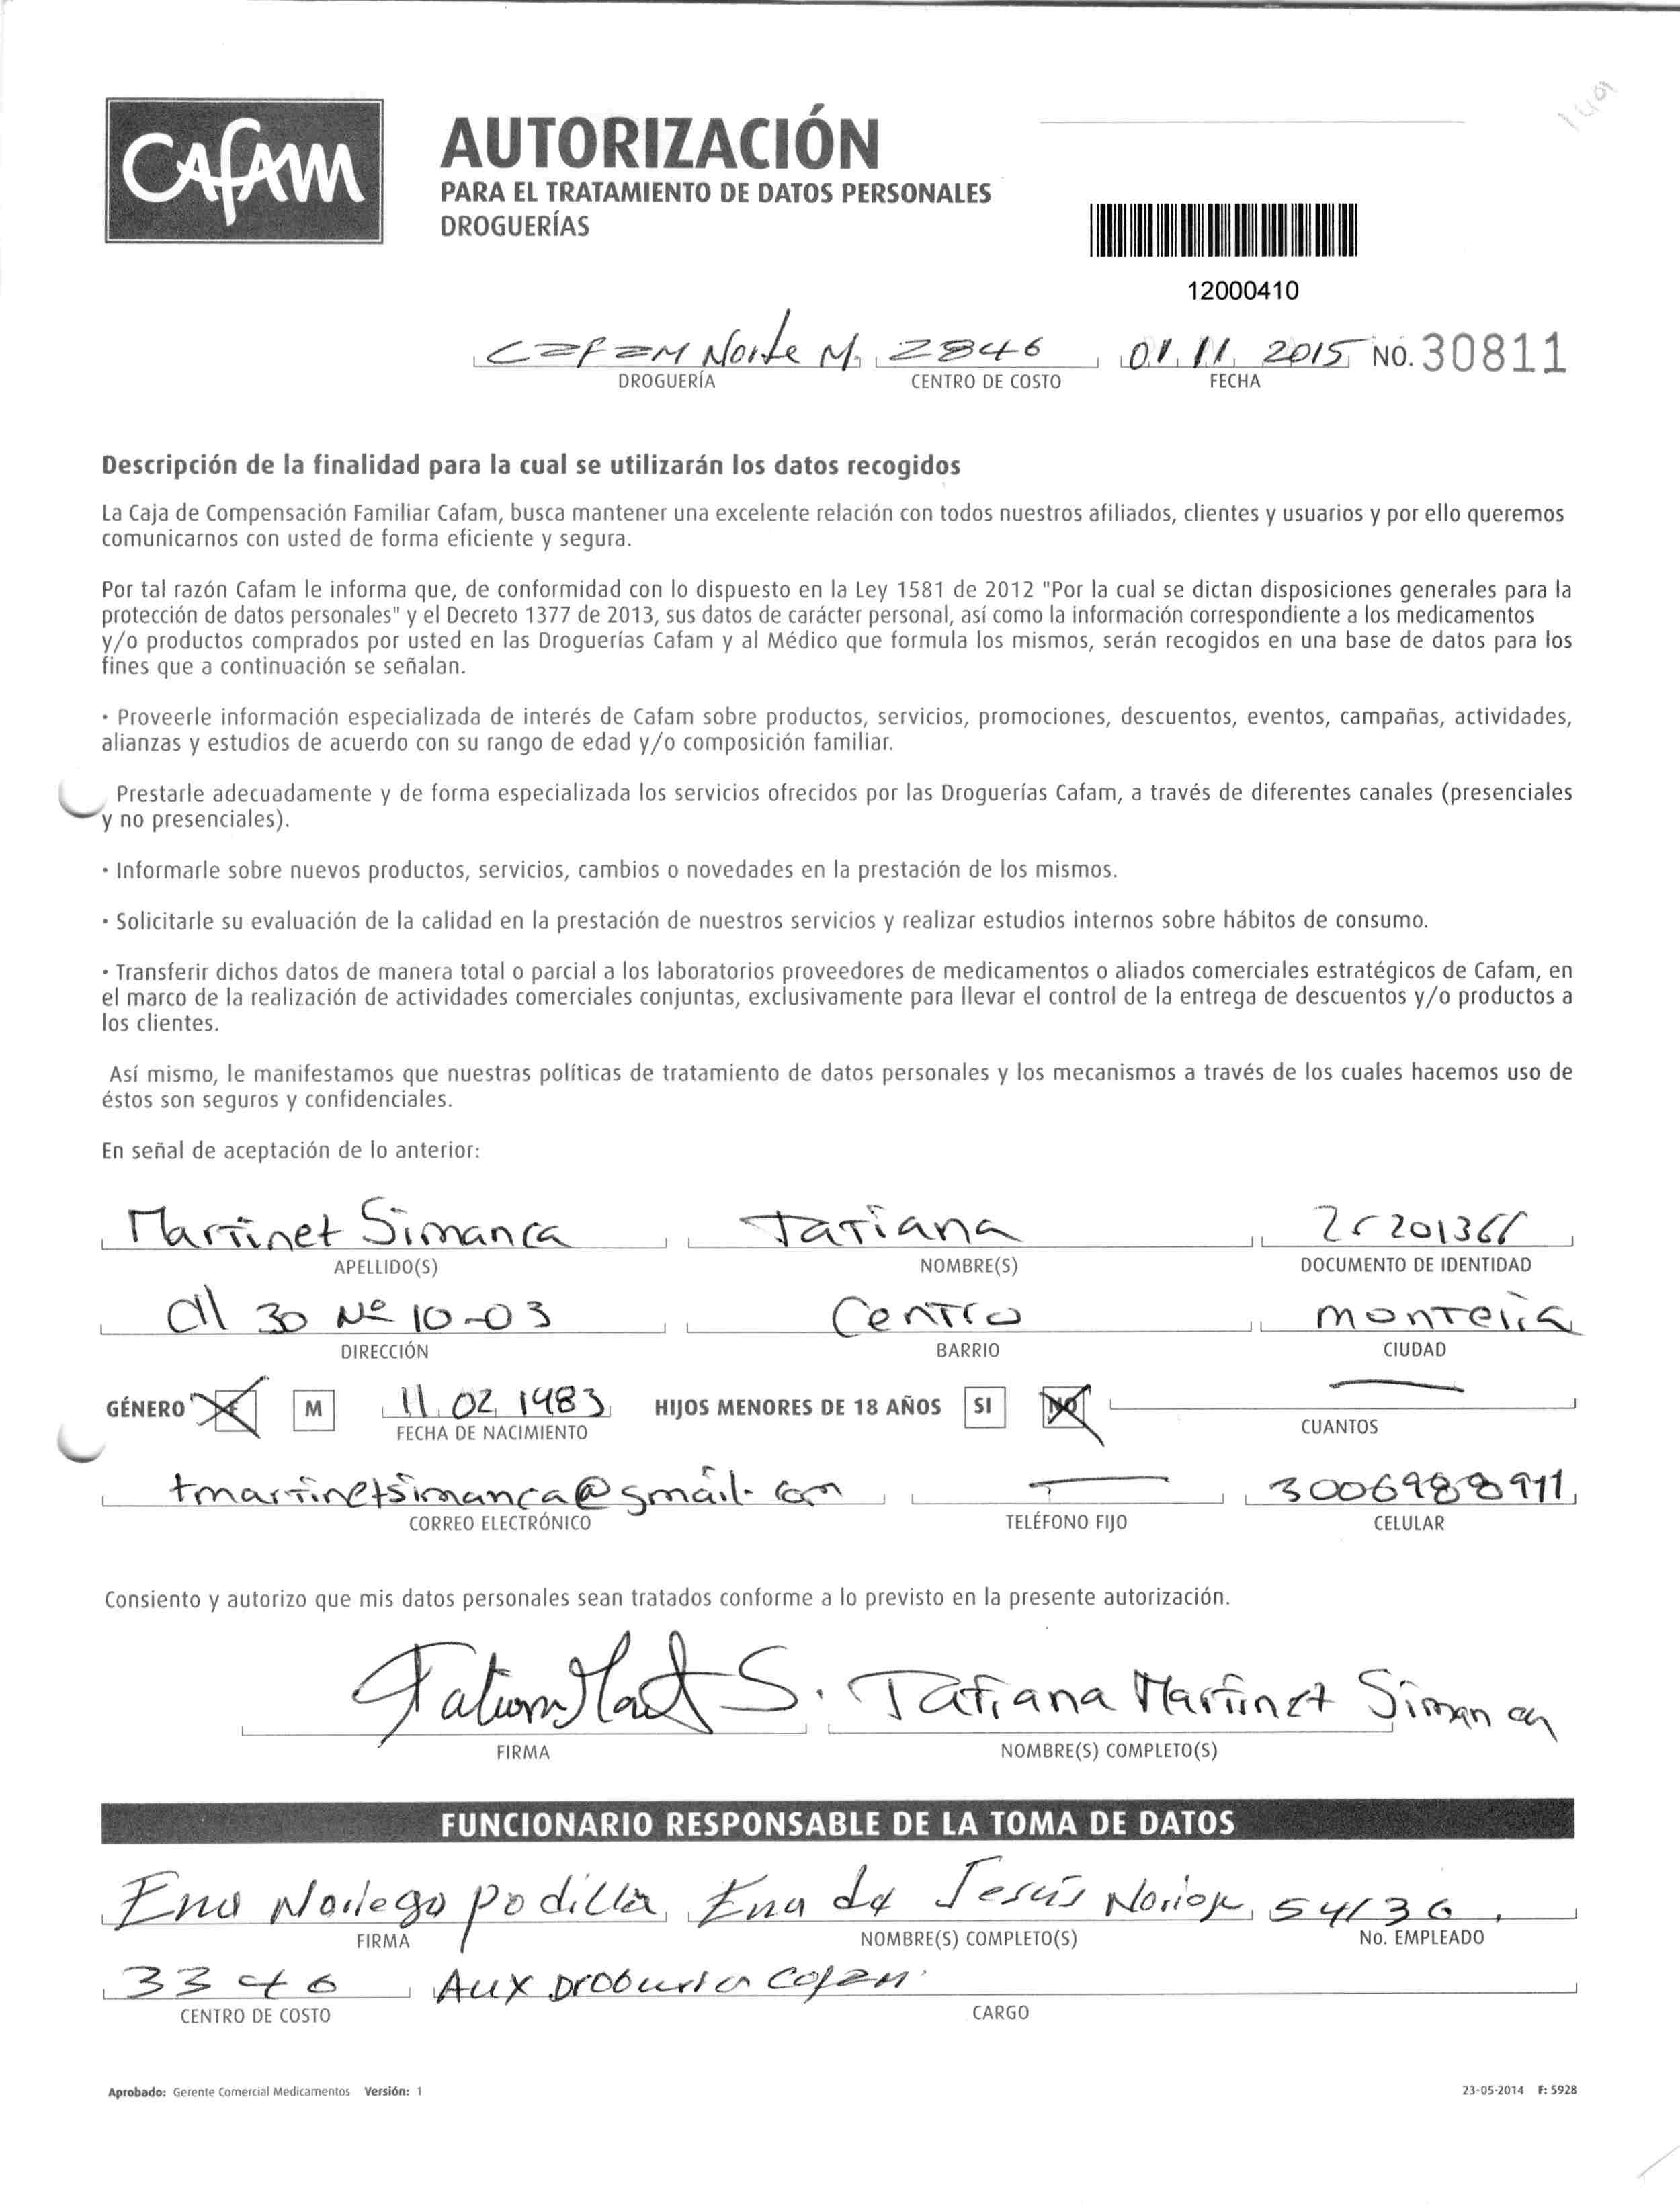 CAFAM
AUTORIZACIÓN
PARA EL TRATAMIENTO DE DATOS PERSONALES
DROGUERÍAS
12000410
Cafam Norte M. 2846 01 11 2015 NO. 30811
DROGUERÍA CENTRO DE COSTO FECHA
Descripción de la finalidad para la cual se utilizarán los datos recogidos
La Caja de Compensación Familiar Cafam, busca mantener una excelente relación con todos nuestros afiliados, clientes y usuarios y por ello queremos
comunicarnos con usted de forma eficiente y segura.
Por tal razón Cafam le informa que, de conformidad con lo dispuesto en la Ley 1581 de 2012 "Por la cual se dictan disposiciones generales para la
protección de datos personales" y el Decreto 1377 de 2013, sus datos de carácter personal, así como la información correspondiente a los medicamentos
y/o productos comprados por usted en las Droguerías Cafam y al Médico que formula los mismos, serán recogidos en una base de datos para los
fines que a continuación se señalan.
· Proveerle información especializada de interés de Cafam sobre productos, servicios, promociones, descuentos, eventos, campañas, actividades,
alianzas y estudios de acuerdo con su rango de edad y/o composición familiar.
Prestarle adecuadamente y de forma especializada los servicios ofrecidos por las Droguerías Cafam, a través de diferentes canales (presenciales
y no presenciales).
· Informarle sobre nuevos productos, servicios, cambios o novedades en la prestación de los mismos.
· Solicitarle su evaluación de la calidad en la prestación de nuestros servicios y realizar estudios internos sobre hábitos de consumo.
· Transferir dichos datos de manera total o parcial a los laboratorios proveedores de medicamentos o aliados comerciales estratégicos de Cafam, en
el marco de la realización de actividades comerciales conjuntas, exclusivamente para llevar el control de la entrega de descuentos y/o productos a
los clientes.
Así mismo, le manifestamos que nuestras políticas de tratamiento de datos personales y los mecanismos a través de los cuales hacemos uso de
éstos son seguros y confidenciales.
En señal de aceptación de lo anterior:
Martinet Simanca Tatiana
APELLIDO(S) NOMBRE(S) DOCUMENTO DE IDENTIDAD
Cll 30 Nº 10-03 Centro Montería
DIRECCIÓN BARRIO CIUDAD
GÉNERO F M 11 02 1983 HIJOS MENORES DE 18 AÑOS SI NO
FECHA DE NACIMIENTO CUANTOS
tmartinetsimanca@gmail.com 3006988911
CORREO ELECTRÓNICO TELÉFONO FIJO CELULAR
Consiento y autorizo que mis datos personales sean tratados conforme a lo previsto en la presente autorización.
Tatiana Martinet Simanca
FIRMA NOMBRE(S) COMPLETO(S)
FUNCIONARIO RESPONSABLE DE LA TOMA DE DATOS
Ena Noriega Padilla Ena de Jesús Noriega 54136
FIRMA NOMBRE(S) COMPLETO(S) No. EMPLEADO
3346 Aux Drogueria Cafam
CENTRO DE COSTO CARGO
Aprobado: Gerente Comercial Medicamentos Versión: 1 23-05-2014 F: 5928